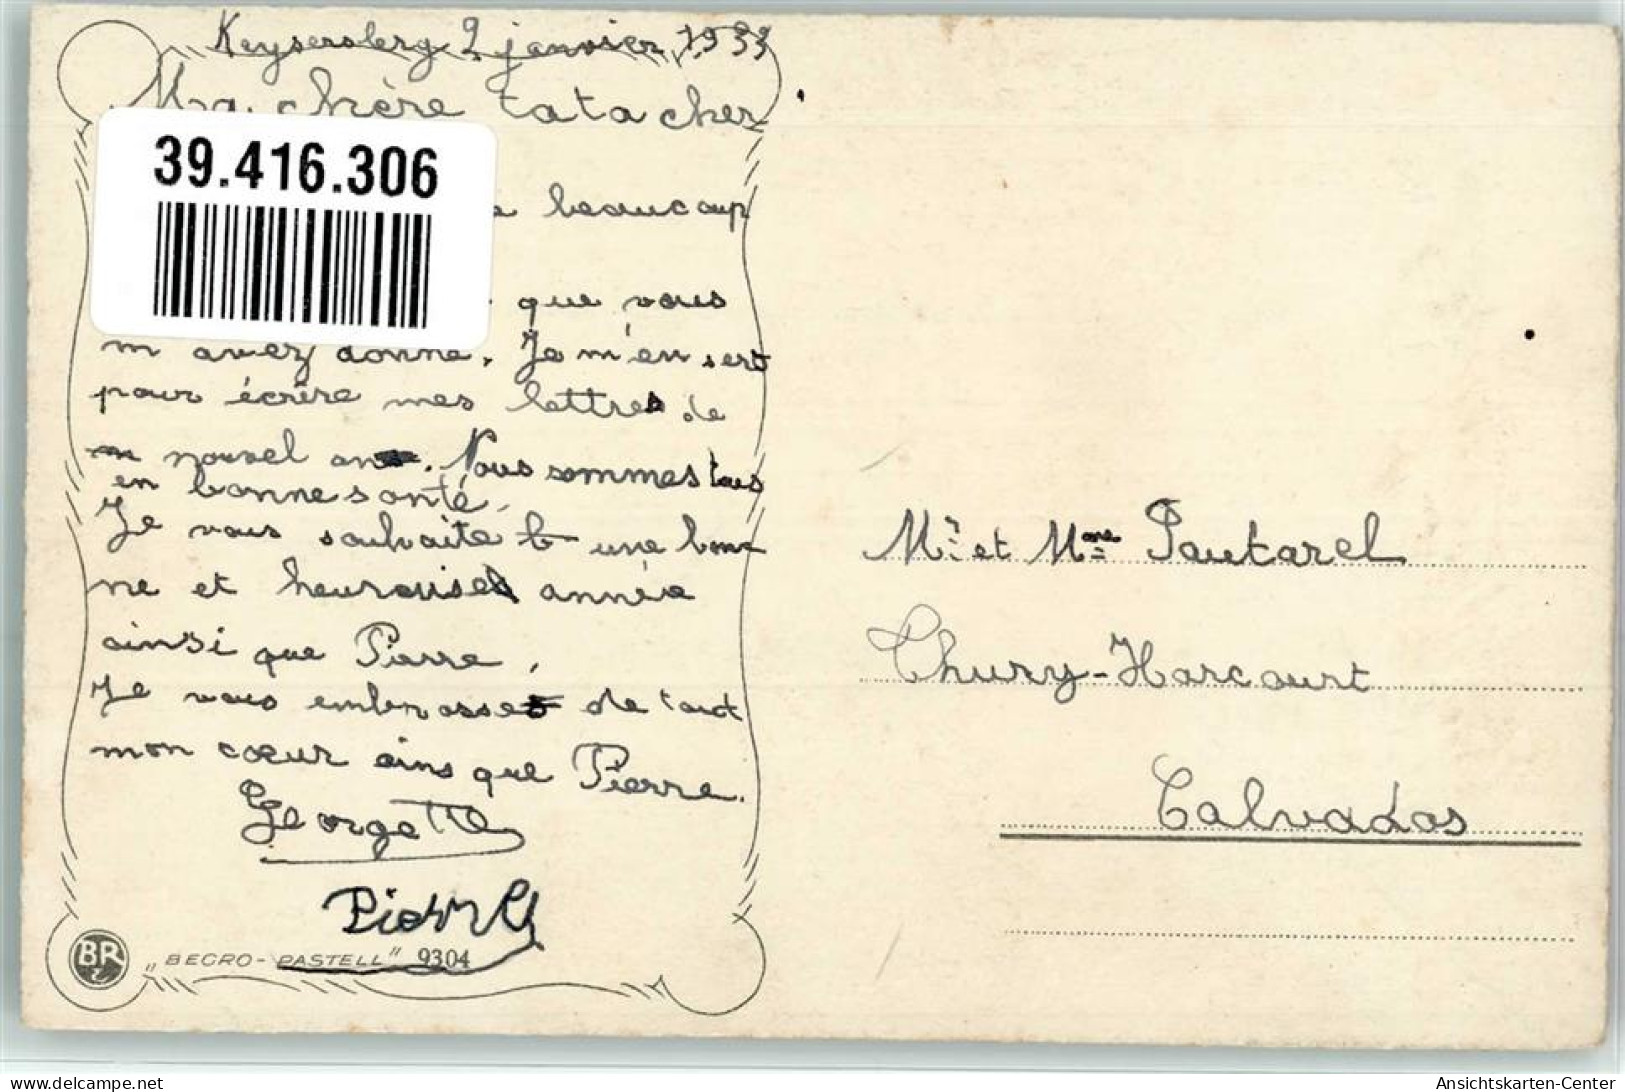 Keysersberg 2 janvier 1933
Ma chère tata cher
39.416.306
beaucoup
que vous
m'avez donné. Je m'en sert
pour écrire mes lettres de
nouvel an. Nous sommes tous
en bonne santé.
Je vous souhaite une bon-
ne et heureuse année
ainsi que Pierre,
Je vous embrasse de tout
mon cœur ains que Pierre.
Georgette
Pierre
BR
„BECRO-PASTELL" 9304
Mr. et Mme Pautarel
Thury-Harcourt
Calvados
Ansichtskarten-Center